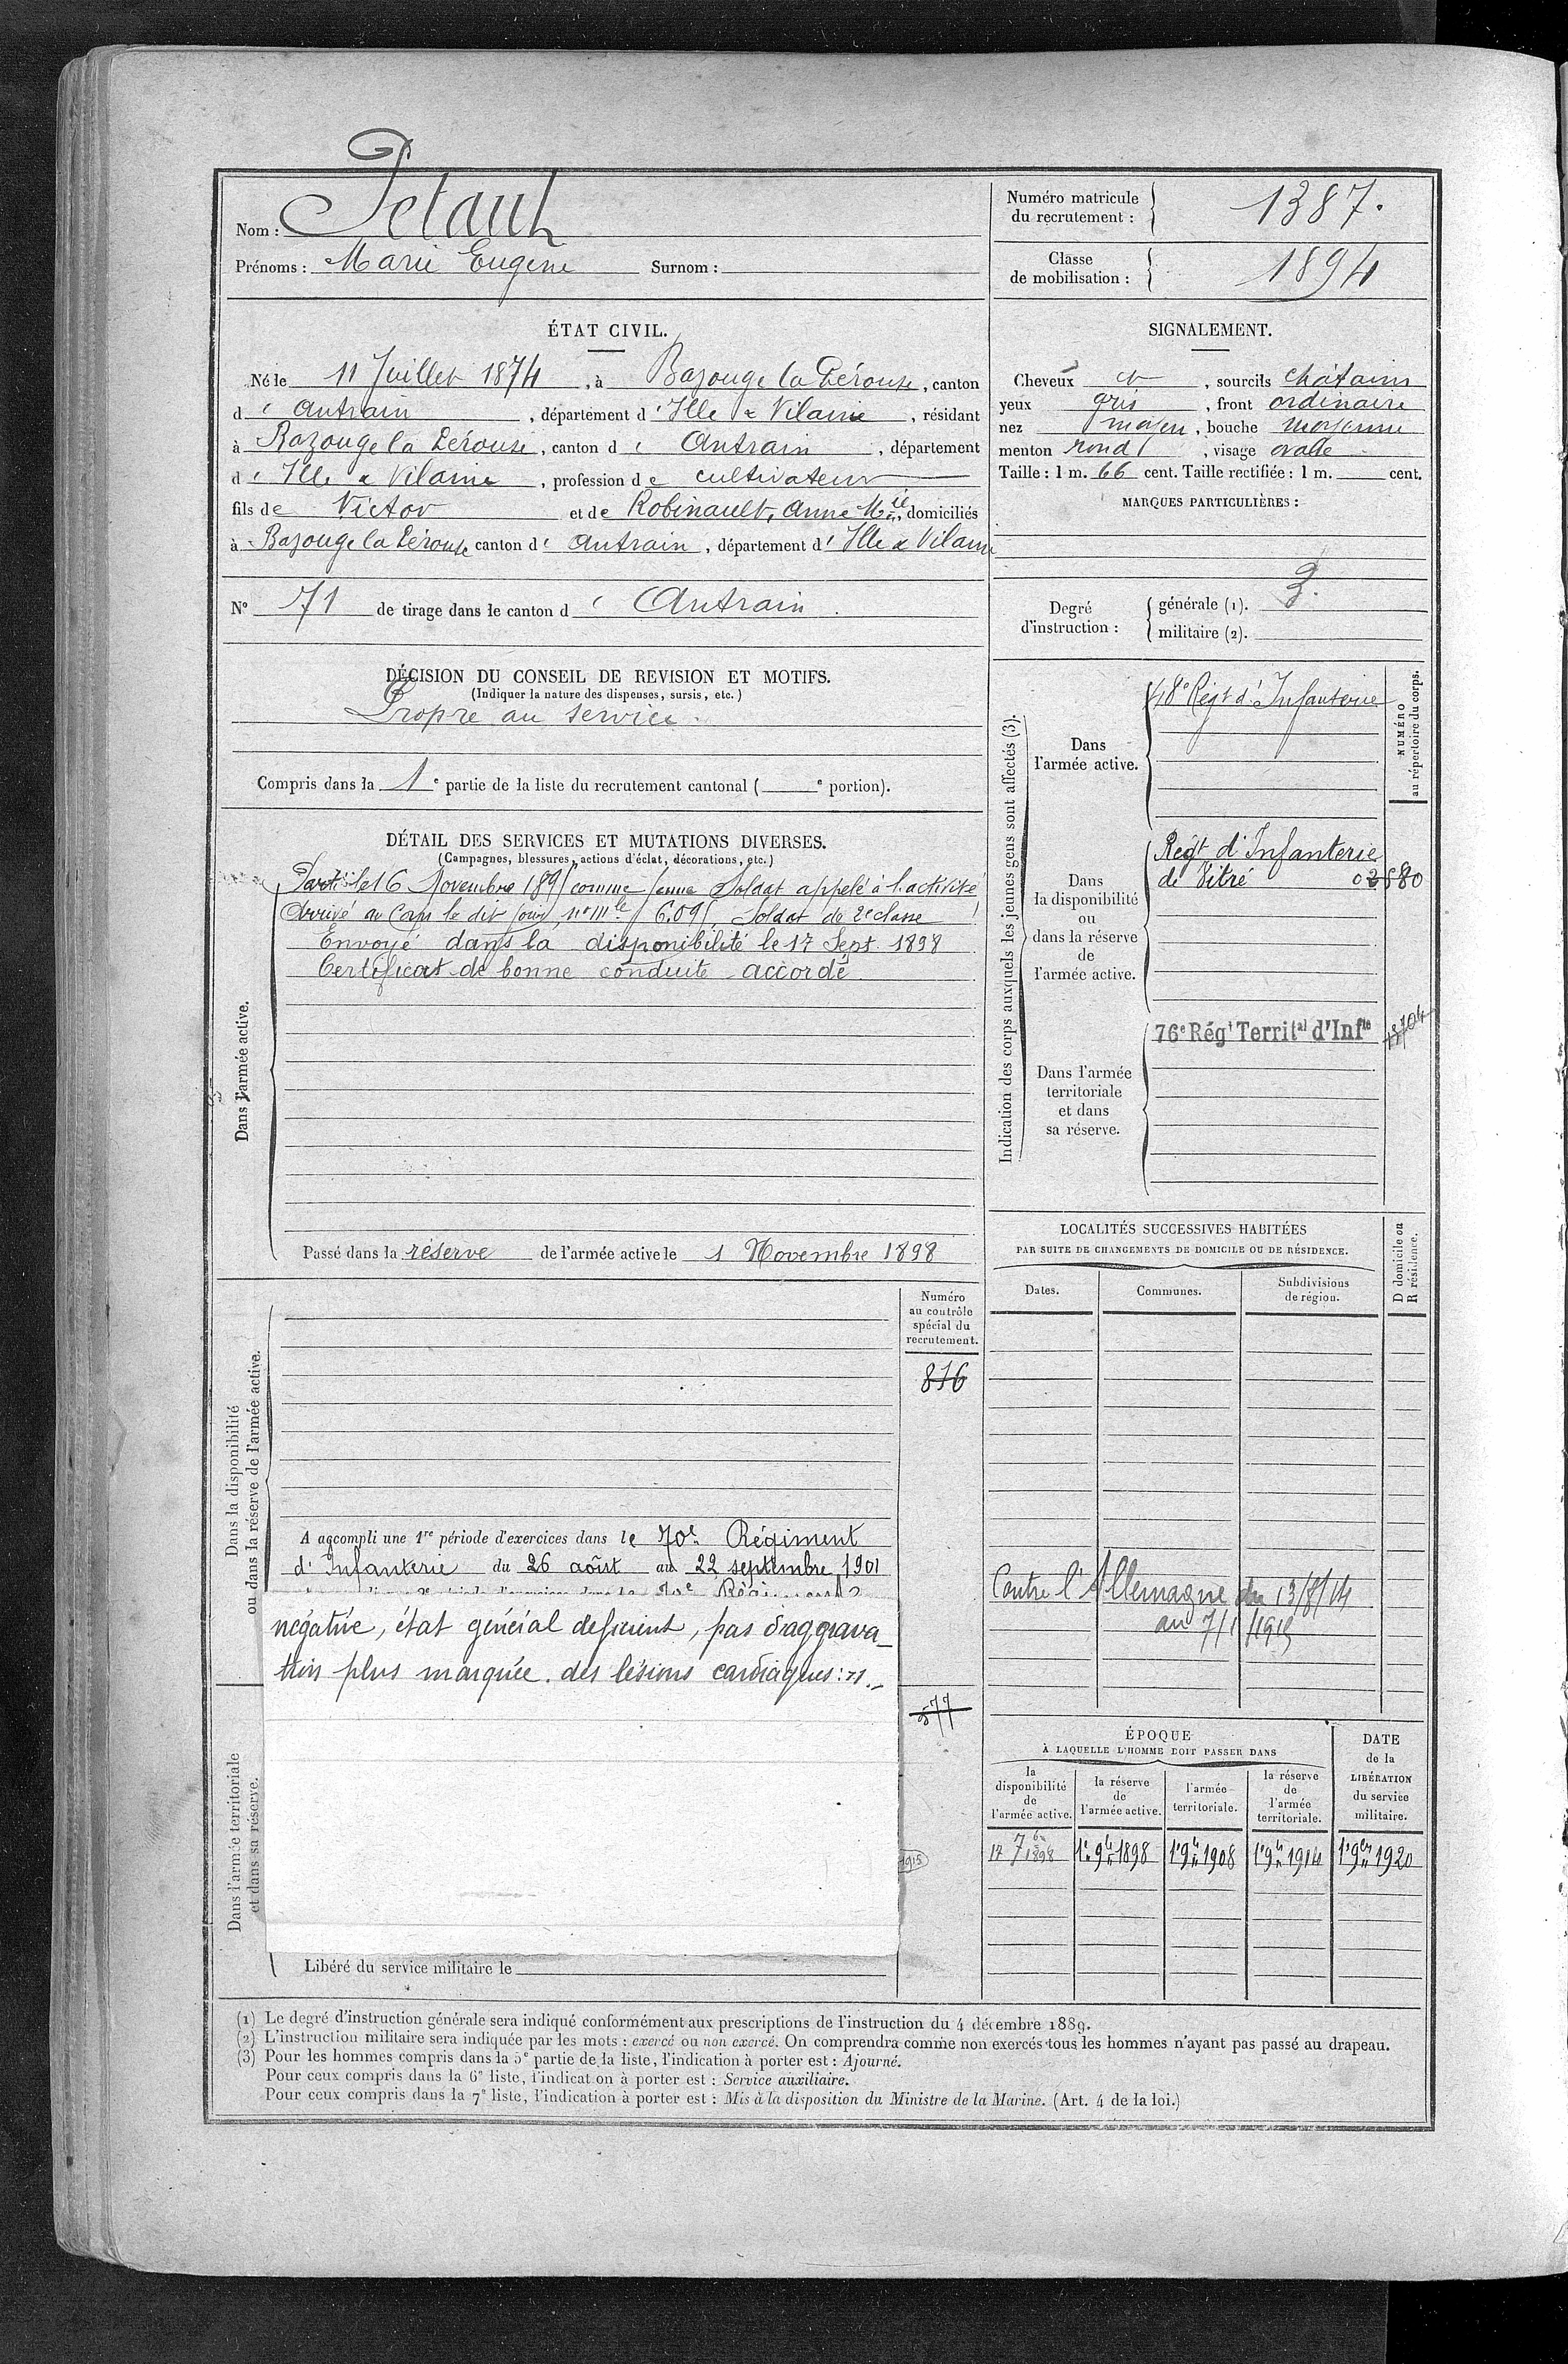 Nom : Petault
Prénoms : Marie Eugène Surnom :
Numéro matricule du recrutement : 1387.
Classe de mobilisation : 1894
ÉTAT CIVIL.
Né le 11 Juillet 1874, à Bazouge la Pérouse, canton
d'Antrain, département d'Ille & Vilaine, résidant
à Bazouge la Pérouse, canton d' Antrain, département
d'Ille & Vilaine, profession de cultivateur
fils de Victor et de Robinault, Anne Mie, domiciliés
à Bazouge la Pérouse canton d' Antrain, département d'Ille & Vilaine
N° 71 de tirage dans le canton d' Antrain.
SIGNALEMENT.
Cheveux et, sourcils chatains
yeux gris, front ordinaire
nez moyen, bouche moyenne
menton rond, visage ovale
Taille : 1 m. 66 cent. Taille rectifiée : 1 m. cent.
MARQUES PARTICULIÈRES :
Degré d'instruction : générale (1). 3.
militaire (2).
DÉCISION DU CONSEIL DE REVISION ET MOTIFS.
(Indiquer la nature des dispenses, sursis, etc.)
Propre au service.
Compris dans la 1e partie de la liste du recrutement cantonal ( e portion).
DÉTAIL DES SERVICES ET MUTATIONS DIVERSES.
(Campagnes, blessures, actions d'éclat, décorations, etc.)
Dans l'armée active.
Parti le 16 Novembre 1895 comme jeune Soldat appelé à l'activité
Arrivé au Corps le dit jour, n° mle 6.095 Soldat de 2e classe
Envoyé dans la disponibilité le 17 Sept. 1898
Certificat de bonne conduite accordé
Passé dans la réserve de l'armée active le 1 Novembre 1898
Indication des corps auxquels les jeunes gens sont affectés (3).
NUMÉRO au répertoire du corps.
Dans l'armée active.
48e Régt d'Infanterie
Dans la disponibilité ou dans la réserve de l'armée active.
Régt d'Infanterie
de Vitré
Dans l'armée territoriale et dans sa réserve.
76e Régt Territal d'Infie
LOCALITÉS SUCCESSIVES HABITÉES
PAR SUITE DE CHANGEMENTS DE DOMICILE OU DE RÉSIDENCE.
Dates. Communes. Subdivisions de région. D domicile ou R résidence.
Contre l'Allemagne du 13/8/14
au 7/1/1915
Dans la disponibilité ou dans la réserve de l'armée active.
Numéro au contrôle spécial du recrutement.
816
A accompli une 1re période d'exercices dans le 70e Régiment
d'Infanterie du 26 août au 22 septembre 1901
négative, état général deficient, pas d'aggrava-
tion plus marquée des lésions cardiaques
577
1915
Dans l'armée territoriale et dans sa réserve.
Libéré du service militaire le
ÉPOQUE
À LAQUELLE L'HOMME DOIT PASSER DANS
la disponibilité de l'armée active. la réserve de l'armée active. l'armée territoriale. la réserve de l'armée territoriale. DATE de la LIBÉRATION du service militaire.
17 7bre 1898 1er 9bre 1898 1er 9bre 1908 1er 9bre 1914 1er 9bre 1920
(1) Le degré d'instruction générale sera indiqué conformément aux prescriptions de l'instruction du 4 décembre 1889.
(2) L'instruction militaire sera indiquée par les mots : exercé ou non exercé. On comprendra comme non exercés tous les hommes n'ayant pas passé au drapeau.
(3) Pour les hommes compris dans la 5e partie de la liste, l'indication à porter est : Ajourné.
Pour ceux compris dans la 6e liste, l'indication à porter est : Service auxiliaire.
Pour ceux compris dans la 7e liste, l'indication à porter est : Mis à la disposition du Ministre de la Marine. (Art. 4 de la loi.)